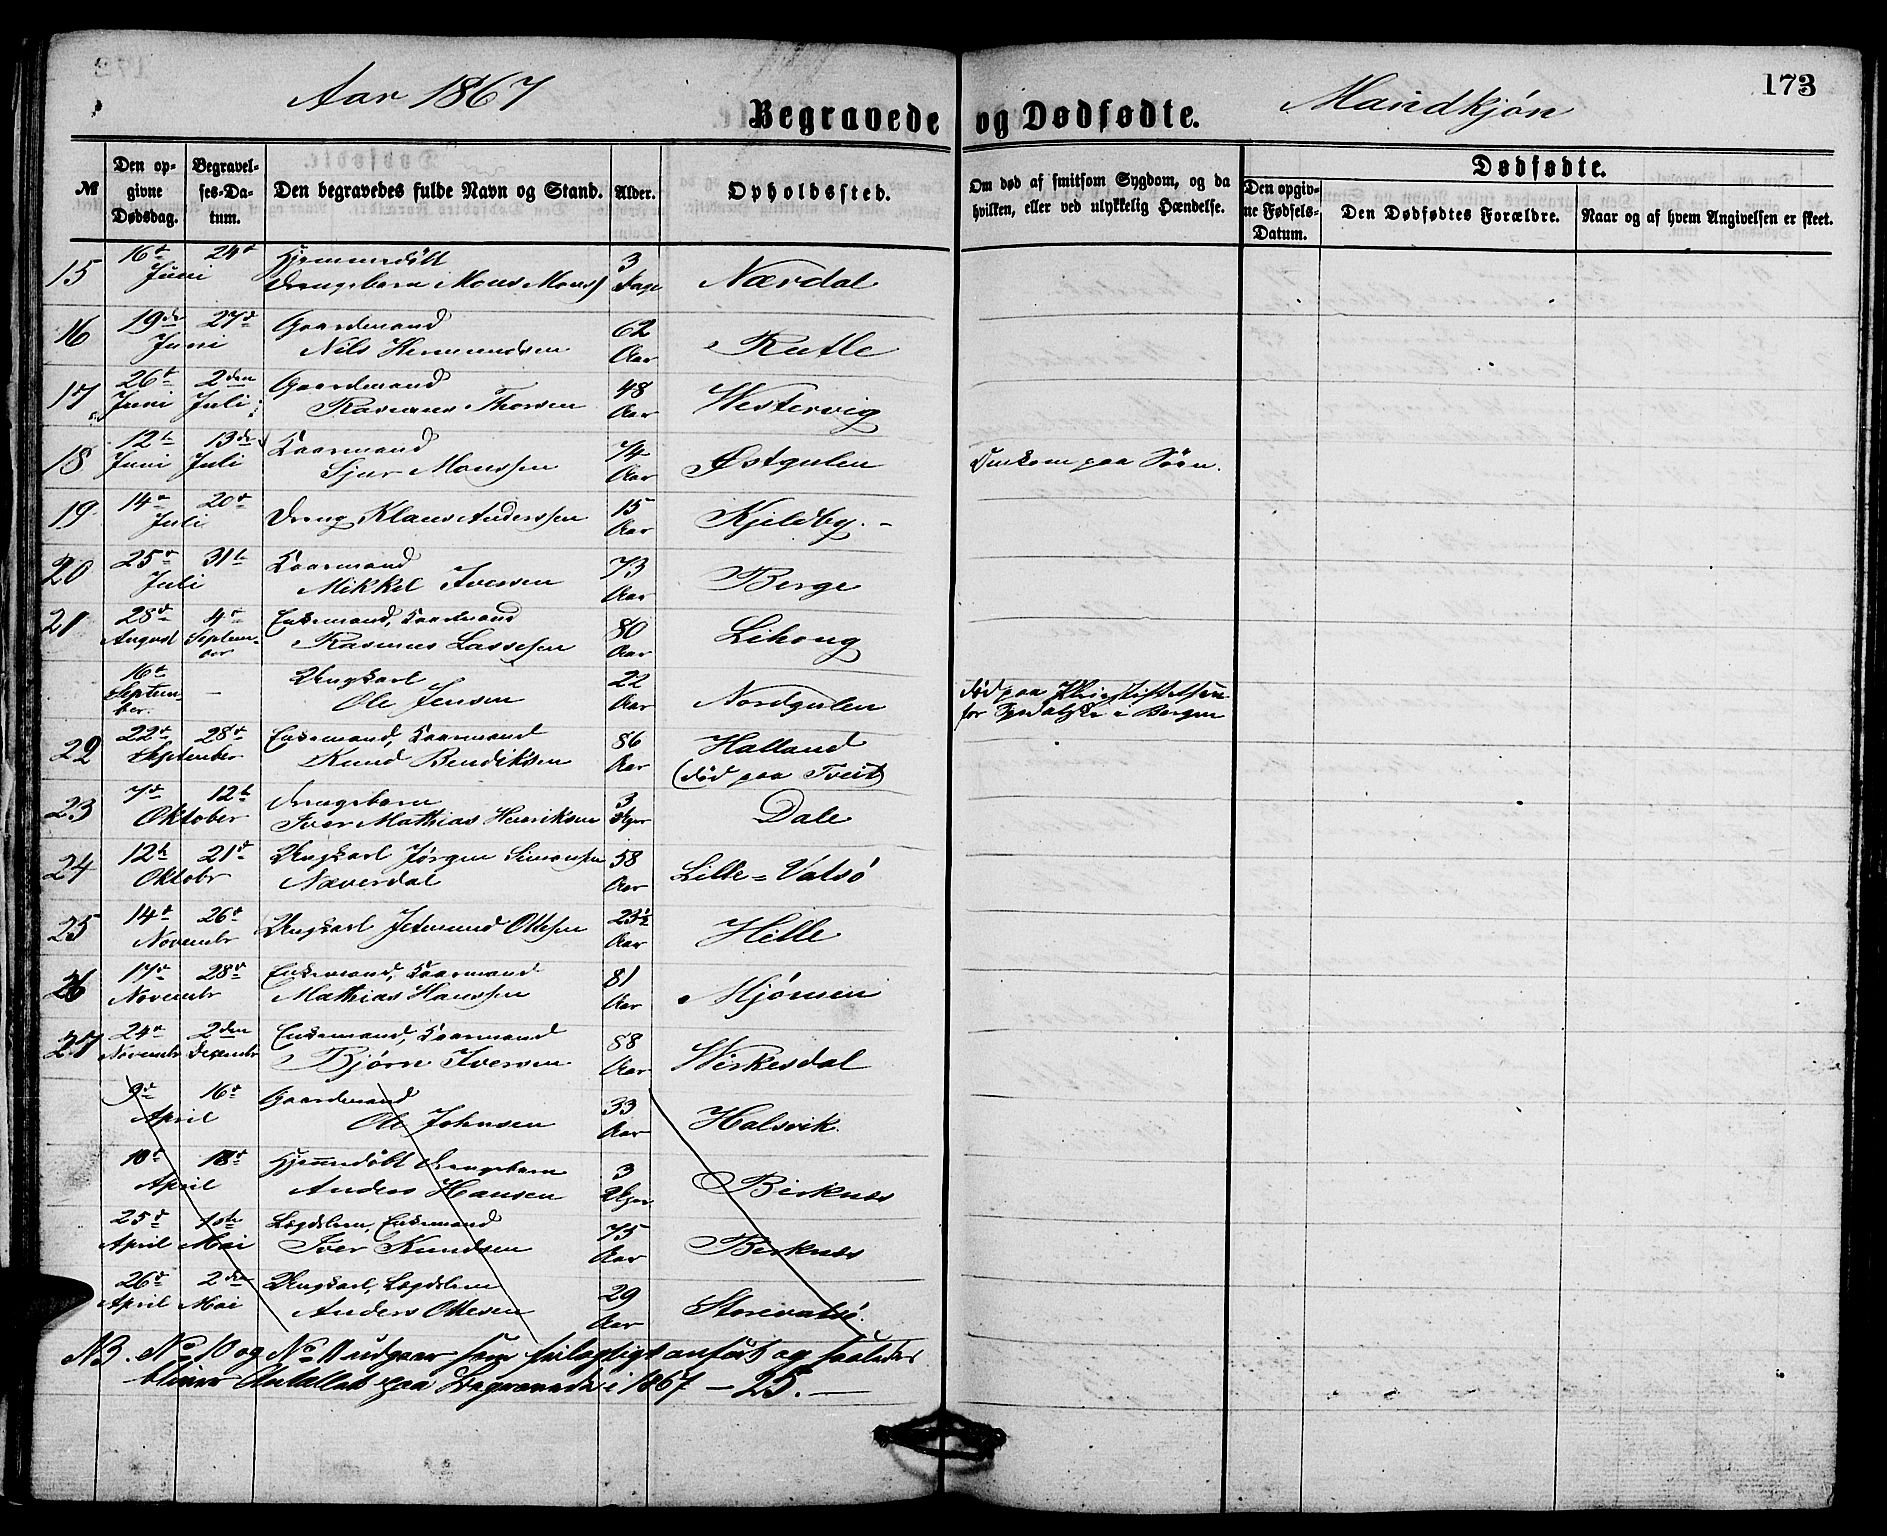 Aar 1867
Begravede og Dødfødte.
Mandkjøn
173
№
Den opgivne Dødsdag.
Begravelses-Datum.
Den begravedes fulde Navn og Stand.
Alder.
Opholdssted.
Om død af smitsom Sygdom, og da hvilken, eller ved ulykkelig Hændelse.
Dødfødte.
Den opgivne Fødsels-Datum.
Den Dødfødtes Forældre.
Naar og af hvem Angivelsen er skeet.
15 16de 24de Hjemmedøbt 3
Juni Drengebarn Mons Monss Dage Nærdal
16 19de 27de Gaardmand 62
Juni Nils Hermundsen Aar Rutle
17 26de 2den Gaardmand 48
Juni Juli Rasmus Thorsen Aar Westervig
18 12te 13de Kaarmand 74
Juni Juli Sjur Monssen Aar Østgulen Omkom paa Søen.
19 14de 20de Dreng Klaus Anderssen 15 Kjeldby.-
Juli Aar
20 25de 31te Kaarmand 73
Juli Mikkel Iversen Aar Berge
21 28de 4de Enkemand, Kaarmand 80
August September Rasmus Lassesen Aar Lihoug
16de Ungkarl 22 død paa Pleiestiftelsen
September — Ole Jensen Aar Nordgulen for Spedalske i Bergen
22 22de 28de Enkemand, Kaarmand 86 Halland
September Knud Bendiksen Aar (død paa Tveit)
23 7de 12te Drengebarn 3 Dale
Oktober Iver Mathias Henriksen Uger
24 12te 21de Ungkarl Jørgen Simonsen 58 Lille-Vatsø
Oktobr Næverdal Aar
25 14de 26de Ungkarl Jetmund Ottesen 23½ Hille
Novembr Aar
26 17de 28de Enkemand, Kaarmand 81
Novembr Mathias Hanssen Aar Mjømen
27 24de 2den Enkemand, Kaarmand 88
Novembr Decembr Bjørn Iversen Aar Wirkesdal
9de 16de Gaardmand 33
April Ole Johnsen Aar Halsvik.
10de 18de Hjemmedøbt Drengebarn 3
April Anders Hansen Uger Birknæs
25de 1ste Lægdslem, Enkemand 75
April Mai Iver Knudsen Aar Birknæs
26de 2den Ungkarl, Lægdslem 29
April Mai Anders Ottesen Aar Storevatsø.
NB. No 10 og No 11 udgaar som feilagtigt anført og saaledes
bliver Antallet paa Begravede i 1867 — 25. —